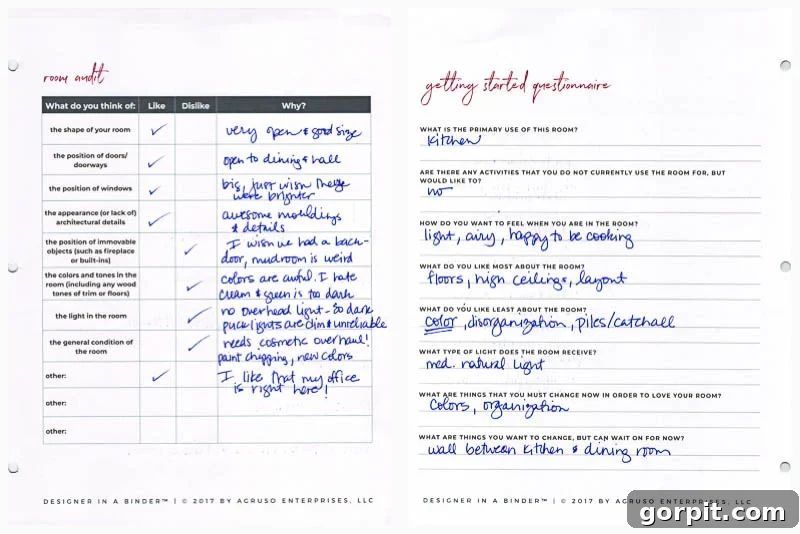 room audit
What do you think of: Like Dislike Why?
the shape of your room ✓ very open & good size
the position of doors/
doorways ✓ open to dining & hall
the position of windows ✓ big, just wish they
were brighter
the appearance (or lack of)
architectural details ✓ awesome mouldings
& details
the position of immovable
objects (such as fireplace
or built-ins) ✓ I wish we had a back-
door, mudroom is weird
the colors and tones in the
room (including any wood
tones of trim or floors) ✓ colors are awful. I hate
cream & green is too dark
the light in the room ✓ no overhead light - so dark
puck lights are dim & unreliable
the general condition of
the room ✓ needs cosmetic overhaul!
paint chipping, new colors
other: ✓ I like that my office
is right here!
other:
other:
DESIGNER IN A BINDER™ | © 2017 BY AGRUSO ENTERPRISES, LLC
getting started questionnaire
WHAT IS THE PRIMARY USE OF THIS ROOM?
kitchen
ARE THERE ANY ACTIVITIES THAT YOU DO NOT CURRENTLY USE THE ROOM FOR, BUT
WOULD LIKE TO?
no
HOW DO YOU WANT TO FEEL WHEN YOU ARE IN THE ROOM?
light, airy, happy to be cooking
WHAT DO YOU LIKE MOST ABOUT THE ROOM?
floors, high ceilings, layout
WHAT DO YOU LIKE LEAST ABOUT THE ROOM?
color, disorganization, piles/catchall
WHAT TYPE OF LIGHT DOES THE ROOM RECEIVE?
med. natural light
WHAT ARE THINGS THAT YOU MUST CHANGE NOW IN ORDER TO LOVE YOUR ROOM?
colors, organization
WHAT ARE THINGS YOU WANT TO CHANGE, BUT CAN WAIT ON FOR NOW?
wall between kitchen & dining room
DESIGNER IN A BINDER™ | © 2017 BY AGRUSO ENTERPRISES, LLC
gorpit.com